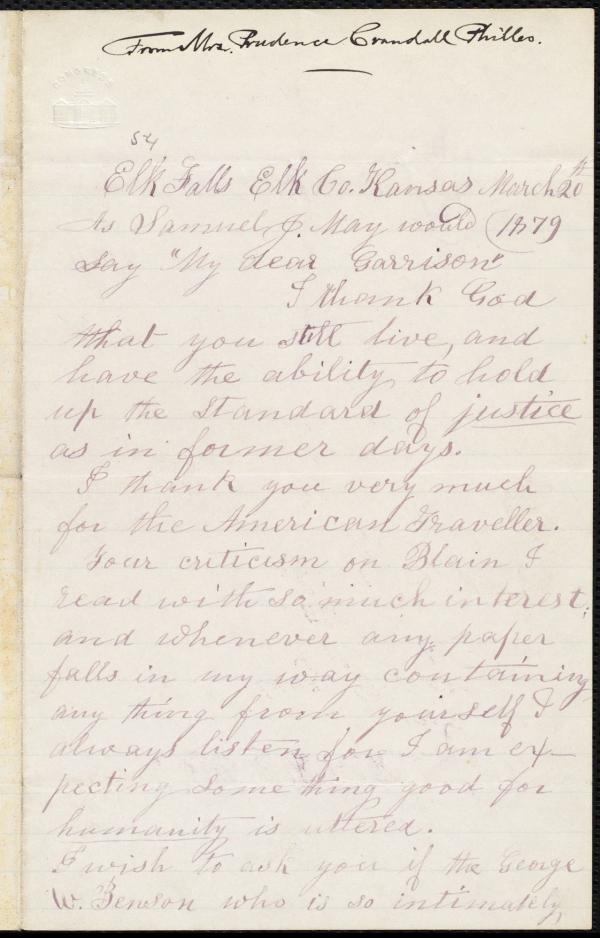 From Mrs. Prudence Crandall Philleo.
CONGRESS
54
Elk Falls Elk Co. Kansas March 20th
As Samuel J. May would 1879
say "My dear Garrison"
I thank God
that you still live, and
have the ability to hold
up the standard of justice
as in former days.
I thank you very much
for the American Traveller.
Your criticism on Blain I
read with so much interest;
and whenever any paper
falls in my way containing
any thing from yourself I
always listen for I am ex-
pecting some thing good for
humanity is uttered.
I wish to ask you if the George
W. Benson who is so intimately,